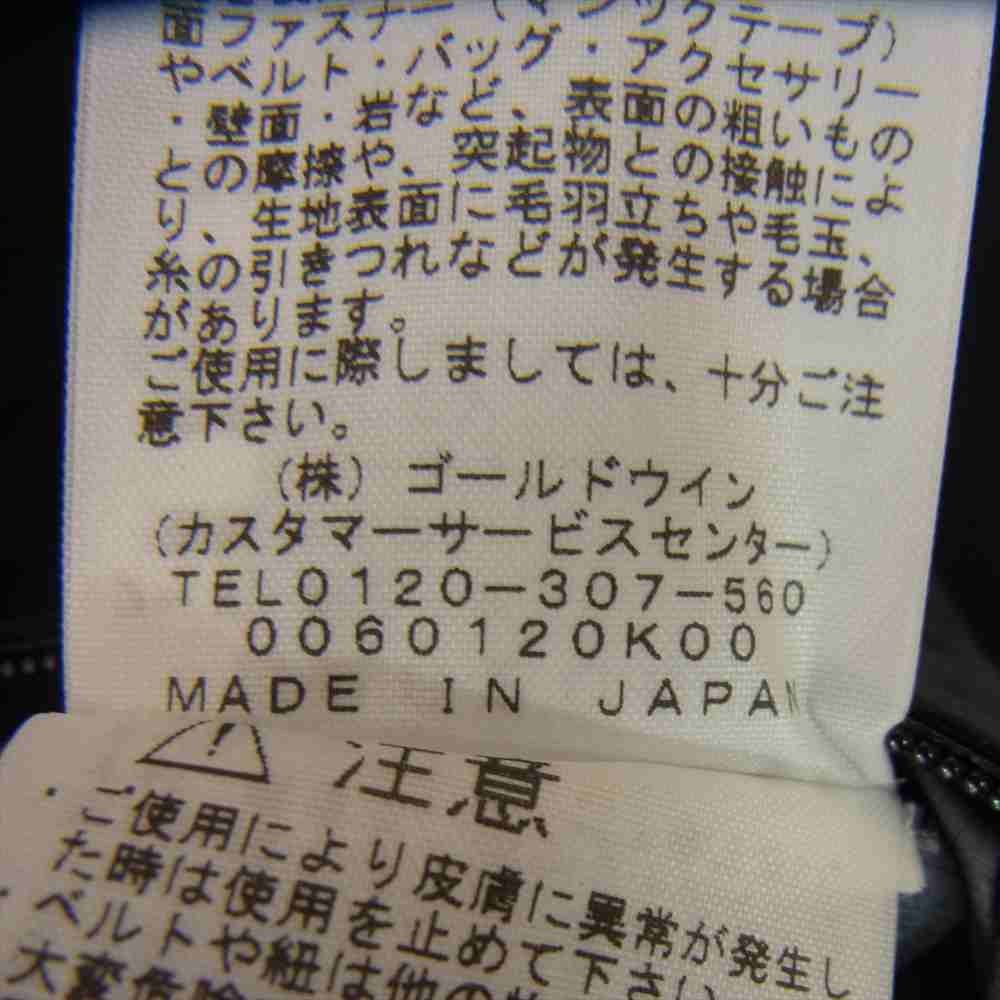 面ファスナー(マジックテープ)
やベルト・バッグ・アクセサリー
・壁面・岩など、表面の粗いもの
との摩擦や、突起物との接触によ
り、生地表面に毛羽立ちや毛玉、
糸の引きつれなどが発生する場合
があります。
ご使用に際しましては、十分ご注
意下さい。
(株) ゴールドウイン
(カスタマーサービスセンター)
TEL0120-307-560
0060120K00
MADE IN JAPAN
注意
・ご使用により皮膚に異常が発生し
た時は使用を止めて下さい
・ベルトや紐は他の
大変危険